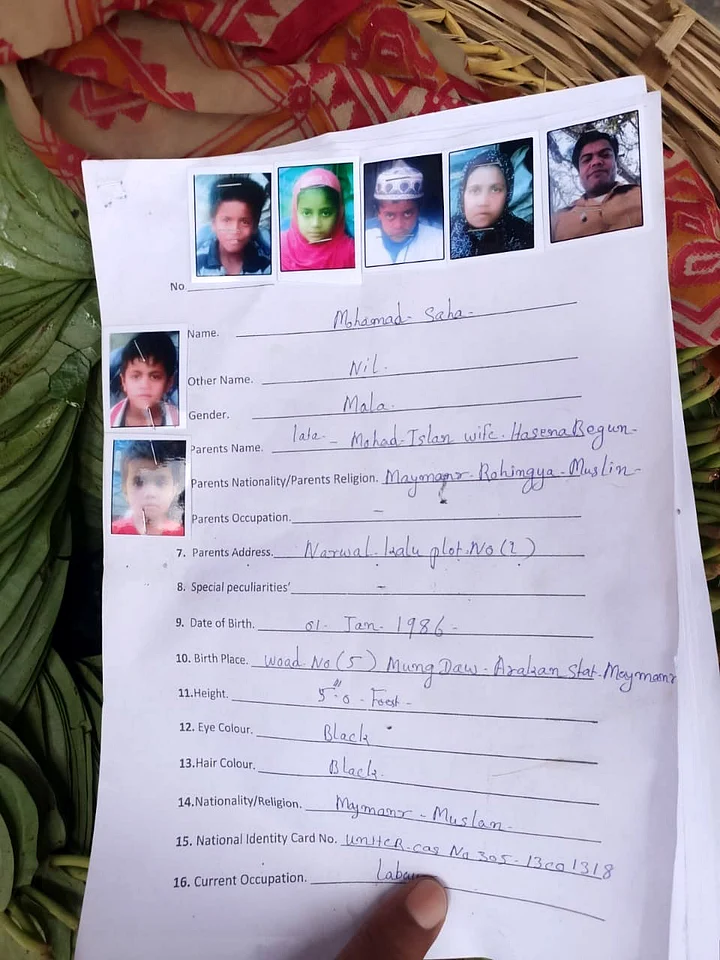 No
Name. Mohamad- Saha-
Other Name. Nil.
Gender. Mala.
Parents Name. lata- Mohad-Islan wife. HasenaBegun-
Parents Nationality/Parents Religion. Maymanr- Rohingya-Muslin-
Parents Occupation. -
7. Parents Address. Narwal- kalu plot. No (2)
8. Special peculiarities' -
9. Date of Birth. 01- Jan- 1986-
10. Birth Place. woad No (5) MungDaw- Arakan Stat. Maymanr
11.Height. 5"0 - Foot-
12. Eye Colour. Black
13.Hair Colour. Black.
14.Nationality/Religion. Maymanr - Muslan-
15. National Identity Card No. UNHCR-cas No 305-13C01318
16. Current Occupation.